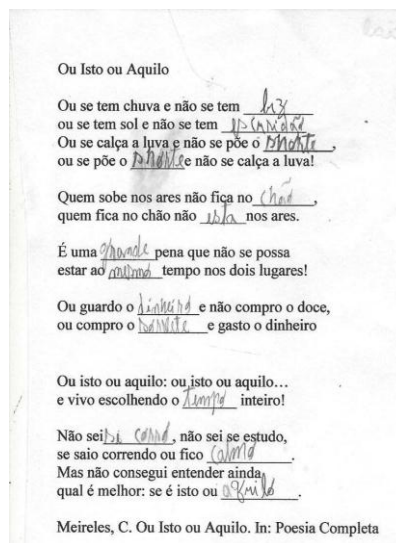 Ou Isto ou Aquilo
Ou se tem chuva e não se tem luz
ou se tem sol e não se tem escuridão
Ou se calça a luva e não se põe o ,
ou se põe o e não se calça a luva!
Quem sobe nos ares não fica no chão,
quem fica no chão não esta nos ares.
É uma grande pena que não se possa
estar ao mesmo tempo nos dois lugares!
Ou guardo o dinheiro e não compro o doce,
ou compro o e gasto o dinheiro
Ou isto ou aquilo: ou isto ou aquilo...
e vivo escolhendo o tempo inteiro!
Não sei si corro, não sei se estudo,
se saio correndo ou fico calmo.
Mas não consegui entender ainda
qual é melhor: se é isto ou aquilo.
Meireles, C. Ou Isto ou Aquilo. In: Poesia Completa